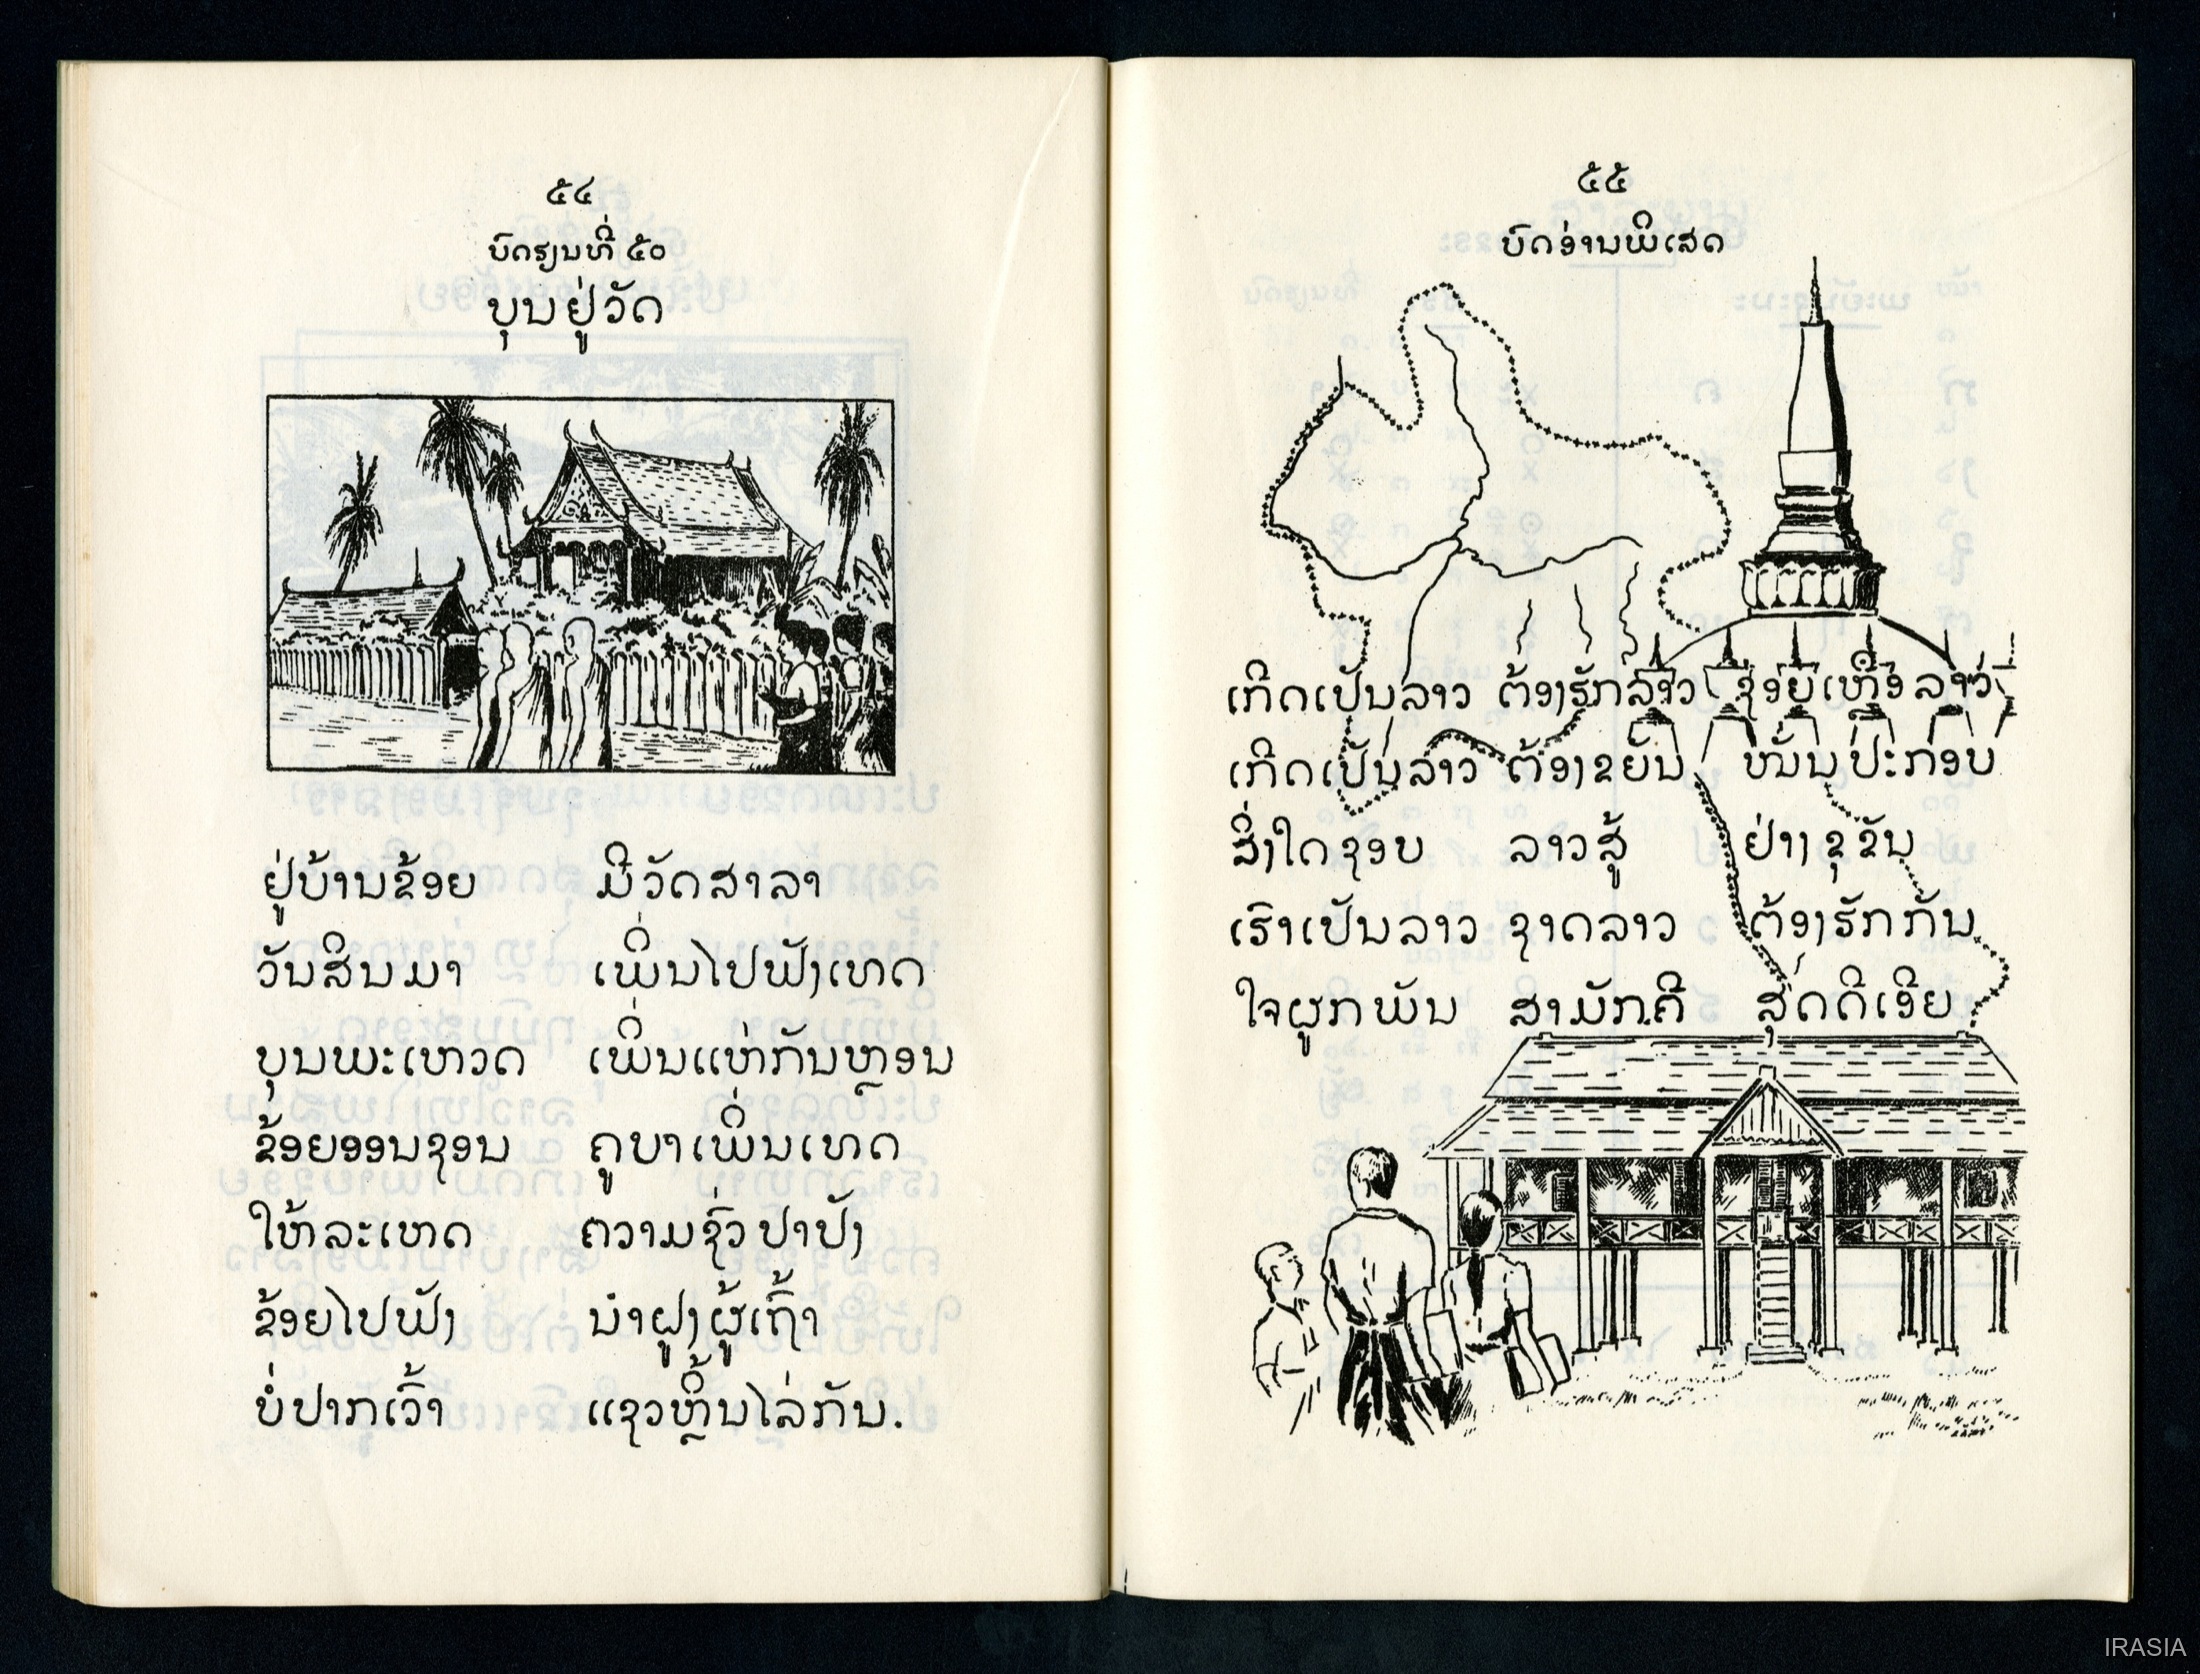 ໕໔
ບົດຮຽນທີ່ ໕໐
ບຸນຢູ່ວັດ
ຢູ່ບ້ານຂ້ອຍ ມີວັດສາລາ
ວັນສິນມາ ເພິ່ນໄປຟັງເທດ
ບຸນພະເຫວດ ເພິ່ນແຫ່ກັນຫຼອນ
ຂ້ອຍອອນຊອນ ຄູບາເພິ່ນເທດ
ໃຫ້ລະເຫດ ຄວາມຊົ່ວປາປັງ
ຂ້ອຍໄປຟັງ ນຳຝູງຜູ້ເຖົ້າ
ບໍ່ປາກເວົ້າ ແຊວຫຼິ້ນໄລ່ກັນ.
໕໕
ບົດອ່ານພິເສດ
ເກີດເປັນລາວ ຕ້ອງຮັກລາວ ຊ່ອຍເຫຼືອລາວ
ເກີດເປັນລາວ ຕ້ອງຂຍັນ ໝັ່ນປະກອບ
ສິ່ງໃດຊອບ ລາວສູ້ ຢ່າງຂຸຂັນ
ເຮົາເປັນລາວ ຊາດລາວ ຕ້ອງຮັກກັນ
ໃຈຜູກພັນ ສາມັກຄີ ສຸດດີເອີຍ
IRASIA